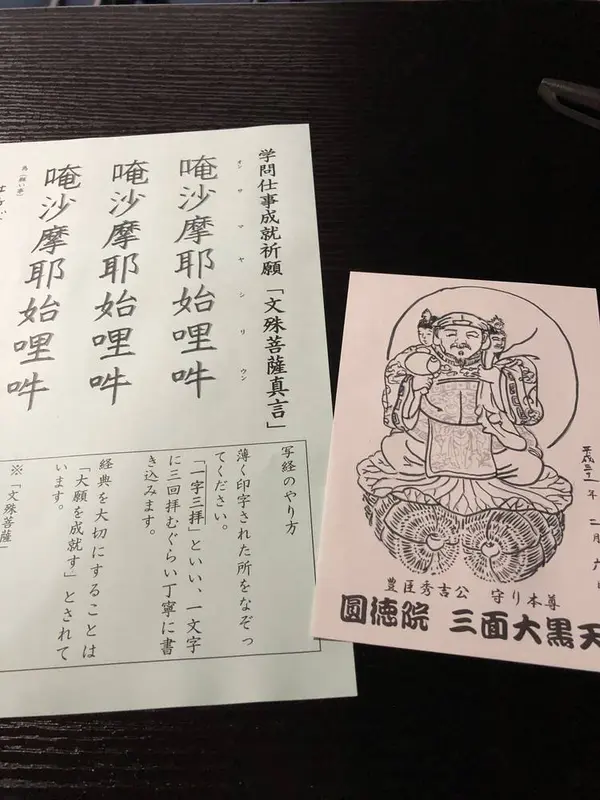 学問仕事成就祈願「文殊菩薩真言」
オン サ マ ヤ シ リ ウン
唵沙摩耶始哩吽
唵沙摩耶始哩吽
唵沙摩耶始哩吽
為(願い事)
写経のやり方
薄く印字された所をなぞっ
てください。
「一字三拝」といい、一文字
に三回拝むぐらい丁寧に書
き込みます。
経典を大切にすることは
「大願を成就す」とされて
います。
※「文殊菩薩」
豊臣秀吉公 守り本尊
圓徳院 三面大黒天